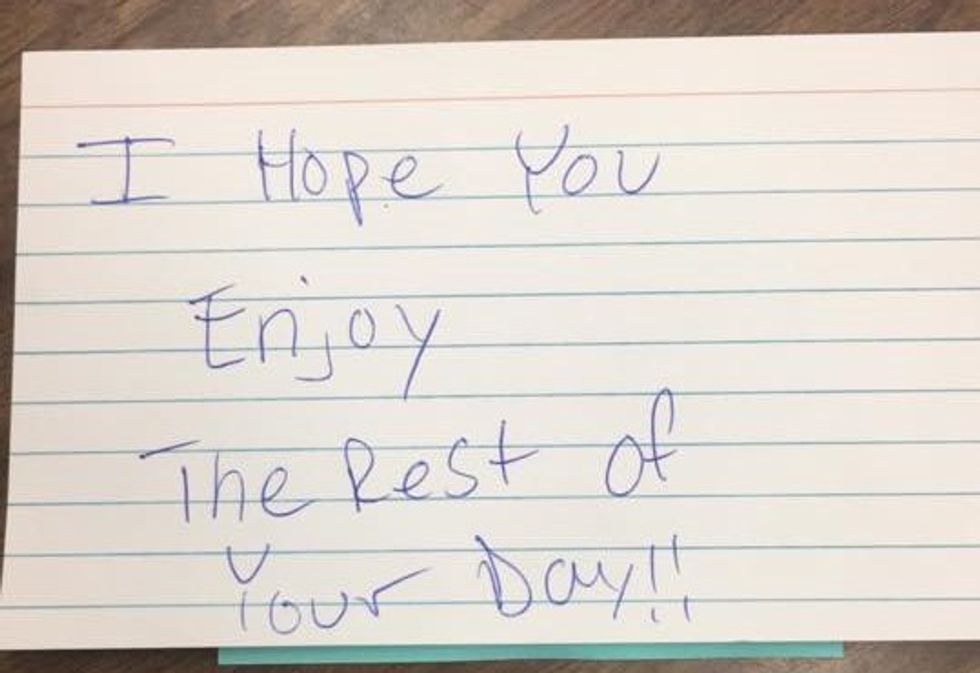 I Hope You
Enjoy
The Rest of
Your Day!!